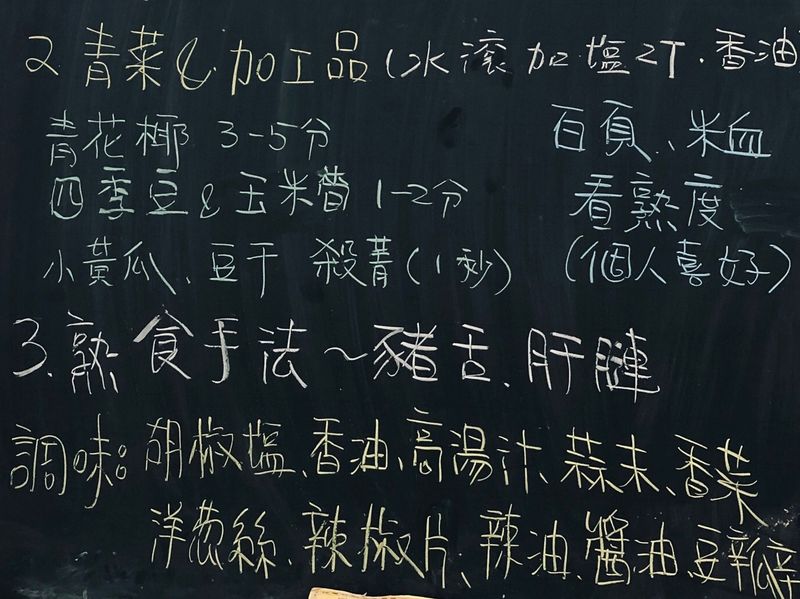 2. 青菜 & 加工品 (水滾加塩2T.香油
青花椰 3-5分 百頁、米血
四季豆 & 玉米筍 1-2分 看熟度
小黃瓜、豆干 殺菁(1秒) (個人喜好)
3. 熟食手法~豬舌、肝膁
調味: 胡椒塩、香油、高湯汁、蒜末、香菜
洋葱絲、辣椒片、辣油、醬油、豆瓣